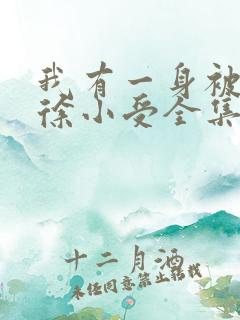 我有一身被
徐小受全集
十二月酒
未经同意禁止转载